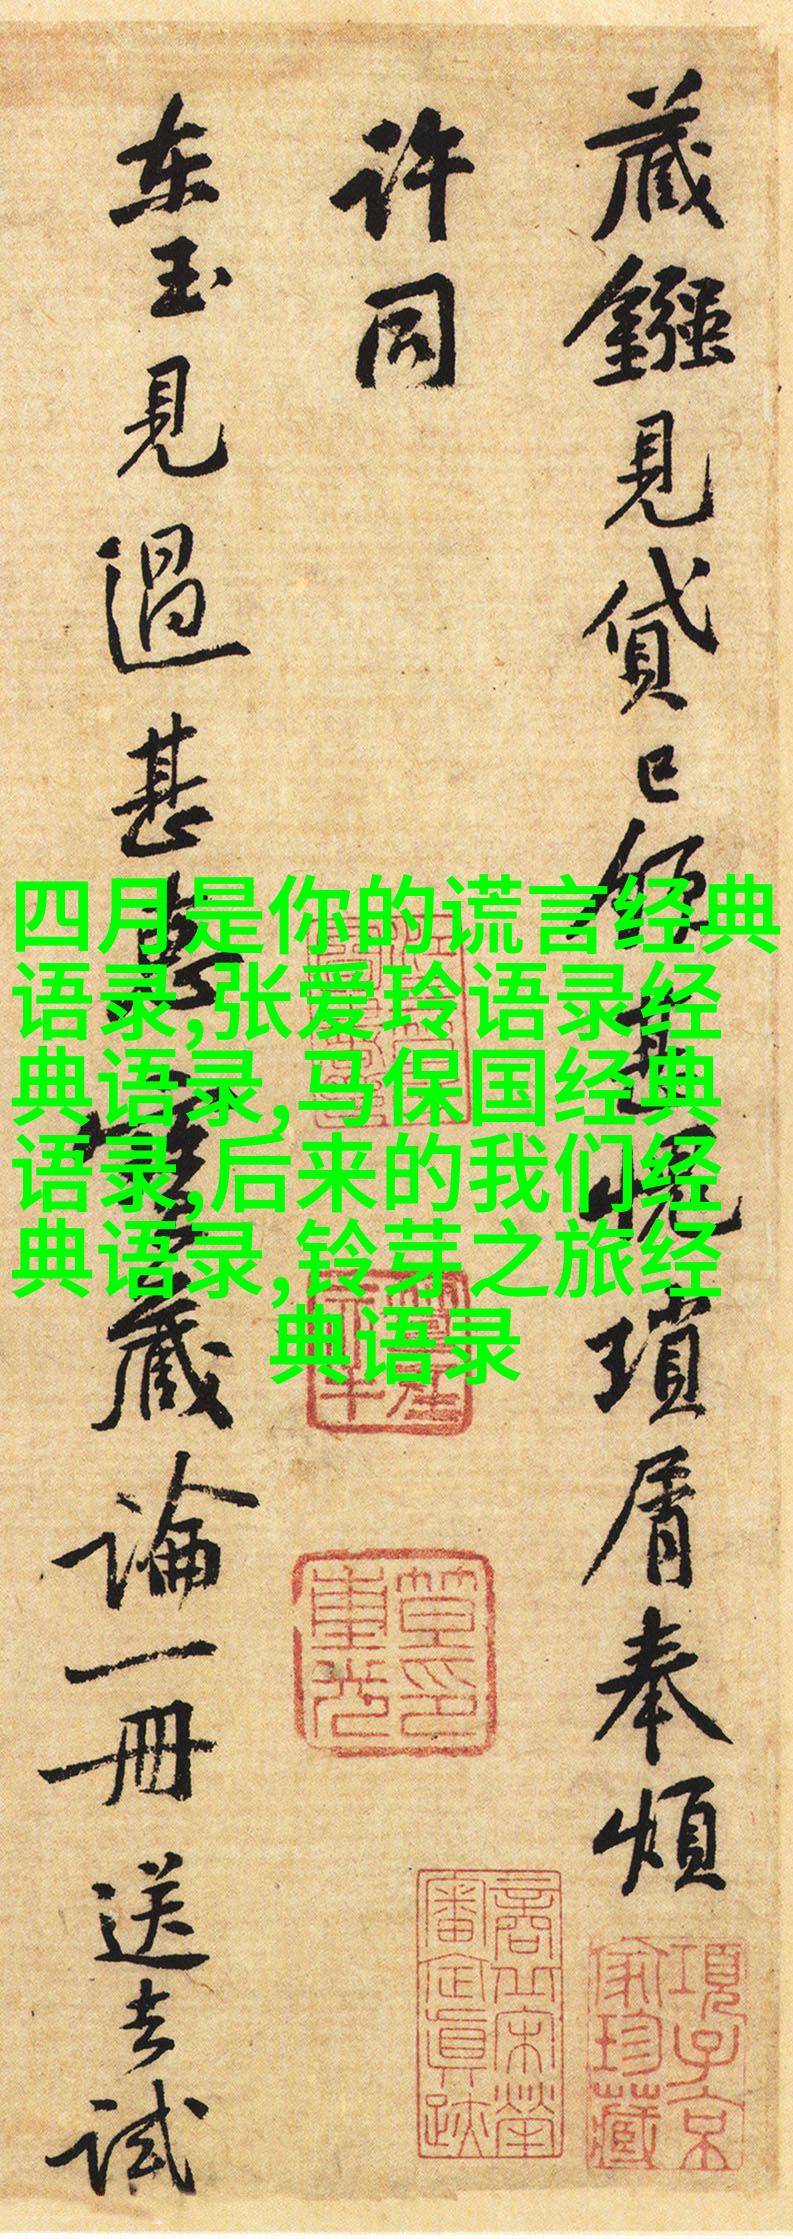 藏鏹見貸已領盡愧瑣屑奉煩
许同
东玉見過甚惠寳藏論一冊送去試
四月是你的谎言经典
语录,张爱玲语录经
典语录,马保国经典
语录,后来的我们经
典语录,铃芽之旅经
典语录
笪印重光
商丘宋犖審定真跡
項子京家珍藏